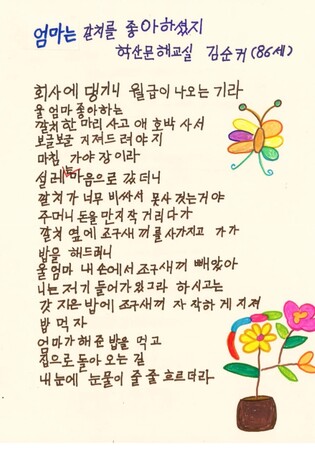 엄마는 갈치를 좋아하셨지
학산문해교실 김순커(86세)
회사에 댕기니 월급이 나오는 기라
울 엄마 좋아하는
깔치 한 마리 사고 애 호박 사서
보글보글 지져드려야지
마침 가야 장이라
설레는 마음으로 갔더니
깔치가 너무 비싸서 못사 겠는거야
주머니 돈을 만지작 거리다가
깔치 옆에 조구새끼를 사가지고 가가
밥을 해드려니
울엄마 내 손에서 조구새끼 빼았아
니는 저기 들어가있그라 하시고는
갓 지은 밥에 조구새끼 자작하게 지져
밥 먹자
엄마가 해준 밥을 먹고
집으로 돌아 오는 길
내 눈에 눈물이 줄 줄 흐르더라